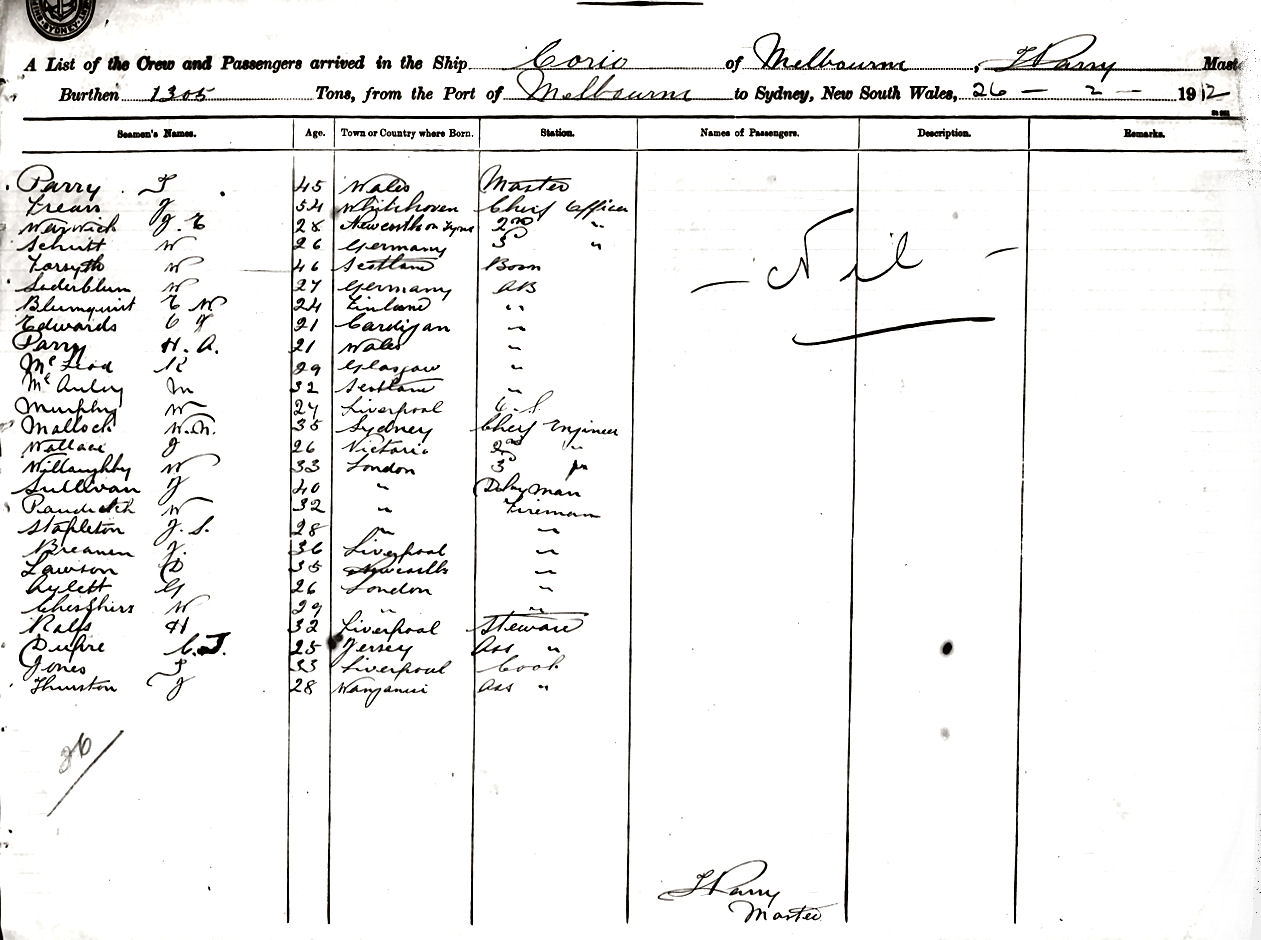 SYDNEY
A List of the Crew and Passengers arrived in the Ship Corio of Melbourne, T Parry Mast
Burthen 1305 Tons, from the Port of Melbourne to Sydney, New South Wales, 26 - 2 - 1912
Seamen's Names. Age. Town or Country where Born. Station. Names of Passengers. Description. Remarks.
Parry T 45 Wales Master
J 54 Whitehaven Chief Officer
Warwick J. E 28 Newcastle on Tyne 2nd "
Schutt W 26 Germany 3d "
Forsyth W 46 Scotland Bosn
Soderblum W 27 Germany AB
Blumquist E W 24 Finland "
Edwards C J 21 Cardigan "
Parry H. A. 21 Wales "
McLeod K 29 Glasgow "
McAuley M 32 Scotland "
Murphy W 27 Liverpool O.S.
Malloch W.N. 35 Sydney Chief Engineer
Wallace J 26 Victoria 2nd "
Willoughby W 33 London 3d "
Sullivan J 40 " Dkyman
W 32 " Fireman
Stapleton J. S. 28 " "
J. 36 Liverpool "
Lawson D 35 Newcastle "
Aylett G 26 London "
Cheshire W 29 " "
Ralfs H 32 Liverpool Steward
Dupre C.J. 25 Jersey Ass "
Jones T 33 Liverpool Cook
Thurston J 28 Wanganui Ass "
- Nil -
26/
T Parry
Master